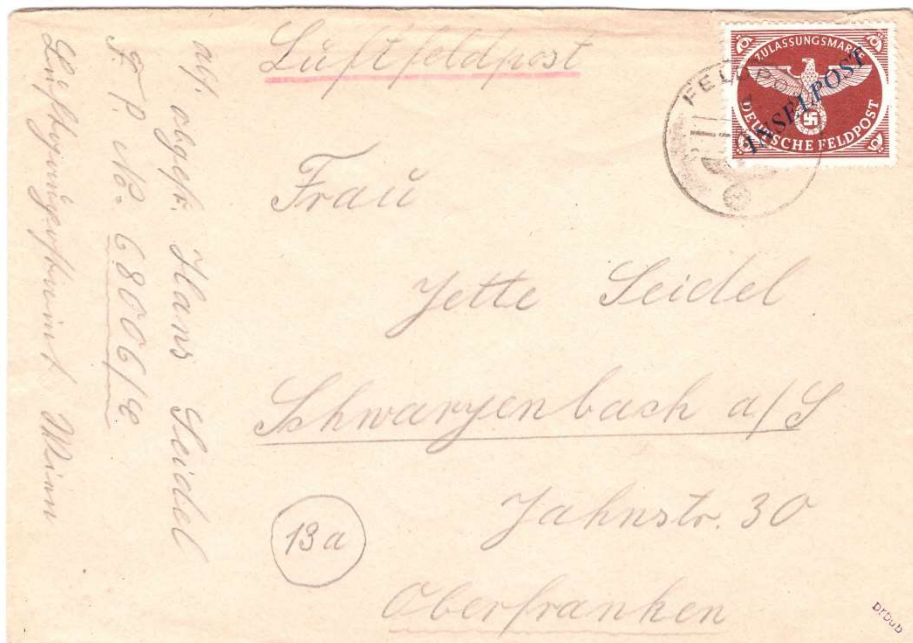 Luftfeldpost
ZULASSUNGSMARKE
INSELPOST
DEUTSCHE FELDPOST
FELDPO
Frau
Jette Seidel
Schwarzenbach a/S
Jahnstr. 30
13a
Oberfranken
Hans Seidel
F. P. No. 68006/E.
Luftgaupostamt Wien
DrDub